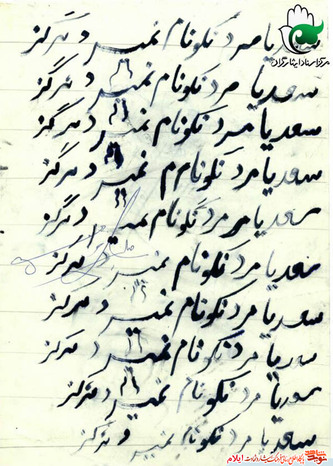 سعدیا مرد نکونام نمیرد هرگز
سعدیا مرد نکونام نمیرد هرگز
سعدیا مرد نکونام نمیرد هرگز
سعدیا مرد نکونام م نمیرد هرگز
سعدیا مرد نکونام نمیرد هرگز
سعدیا مرد نکونام نمیرد هرگز
سعدیا مرد نکونام نمیرد هرگز
سعدیا مرد نکونام نمیرد هرگز
سعدیا مرد نکونام نمیرد هرگز
سعدیا مرد نکونام نمیرد هرگز
مرکز اسناد ایثارگران
ایلام